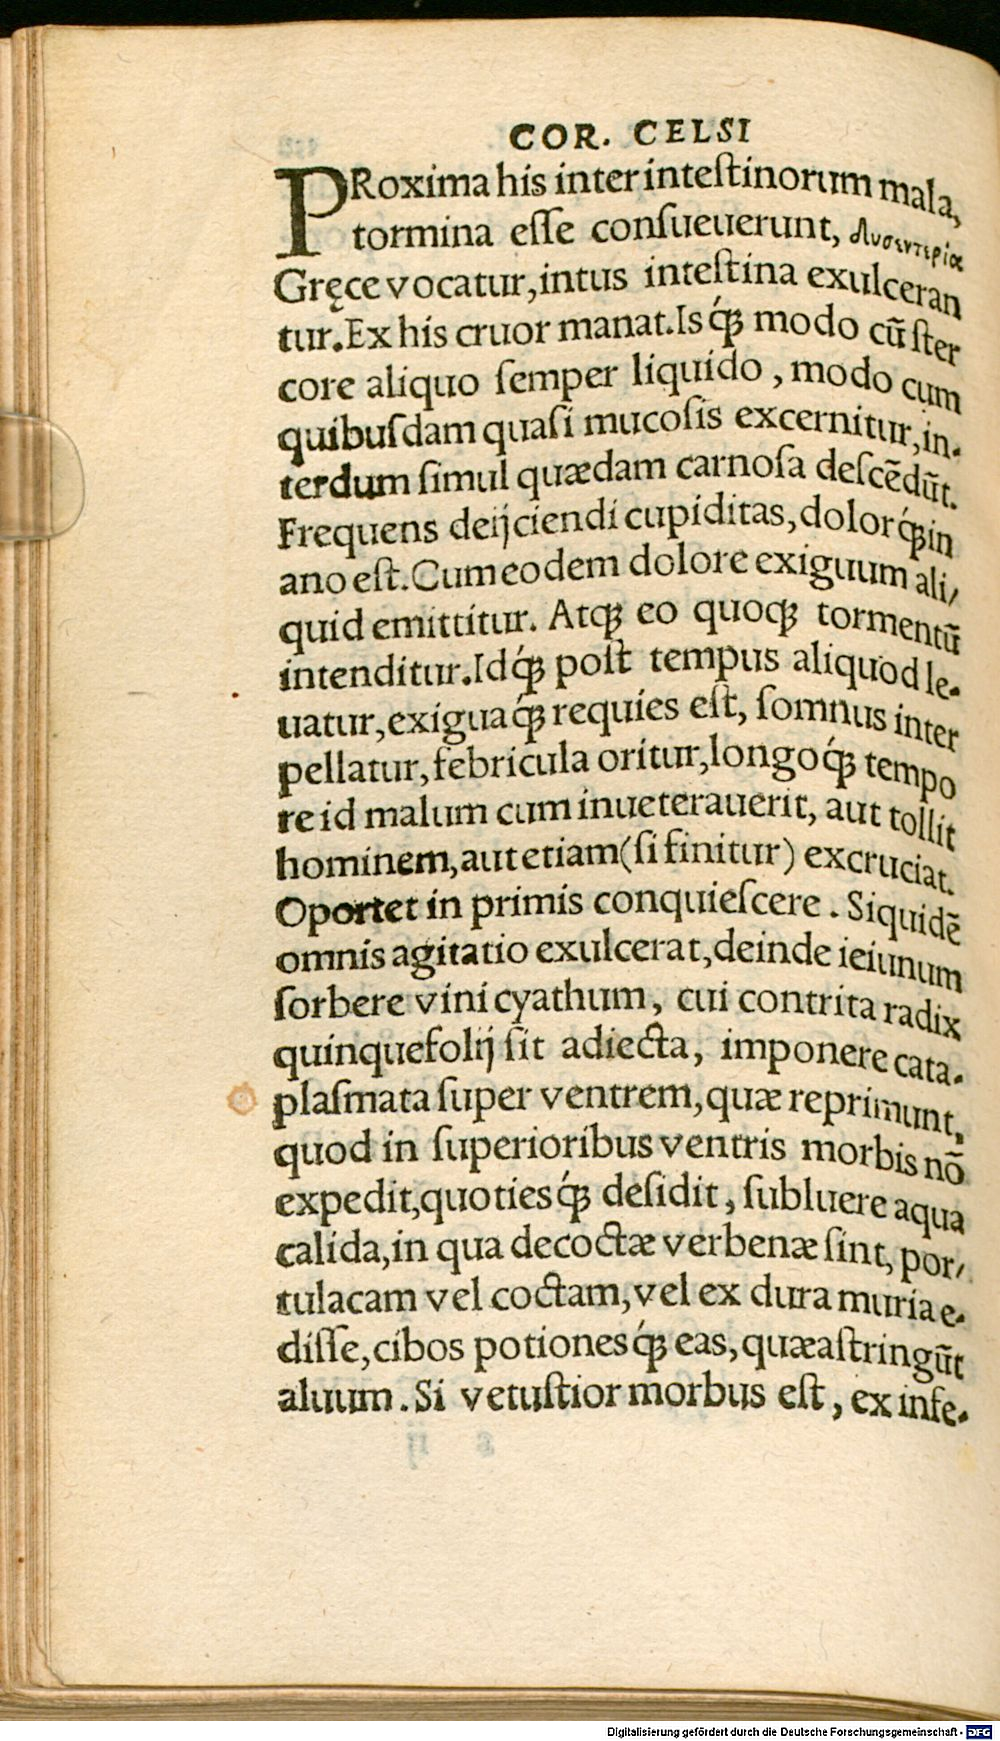 COR. CELSI
PRoxima his inter inteſtinorum mala,
tormina eſſe conſueuerunt, δυσεντερία
Gręce vocatur, intus inteſtina exulceran
tur. Ex his cruor manat. Is q́ꝫ modo cū ſter
core aliquo ſemper liquido, modo cum
quibuſdam quaſi mucoſis excernitur, in-
terdum ſimul quædam carnoſa deſcēdūt.
Frequens deijciendi cupiditas, dolor q́ꝫ in
ano eſt. Cum eodem dolore exiguum ali/
quid emittitur. Atqꝫ eo quoqꝫ tormentū
intenditur. Id q́ꝫ poſt tempus aliquod le-
uatur, exigua q́ꝫ requies eſt, ſomnus inter
pellatur, febricula oritur, longo q́ꝫ tempo
re id malum cum inueterauerit, aut tollit
hominem, aut etiam (ſi finitur) excruciat.
Oportet in primis conquieſcere. Siquidē
omnis agitatio exulcerat, deinde ieiunum
ſorbere vini cyathum, cui contrita radix
quinquefolij ſit adiecta, imponere cata-
plaſmata ſuper ventrem, quæ reprimunt,
quod in ſuperioribus ventris morbis nō
expedit, quoties q́ꝫ deſidit, ſubluere aqua
calida, in qua decoctæ verbenæ ſint, por/
tulacam vel coctam, vel ex dura muria e-
diſſe, cibos potiones q́ꝫ eas, quæ aſtringūt
aluum. Si vetuſtior morbus eſt, ex infe-
Digitalisierung gefördert durch die Deutsche Forschungsgemeinschaft - DFG